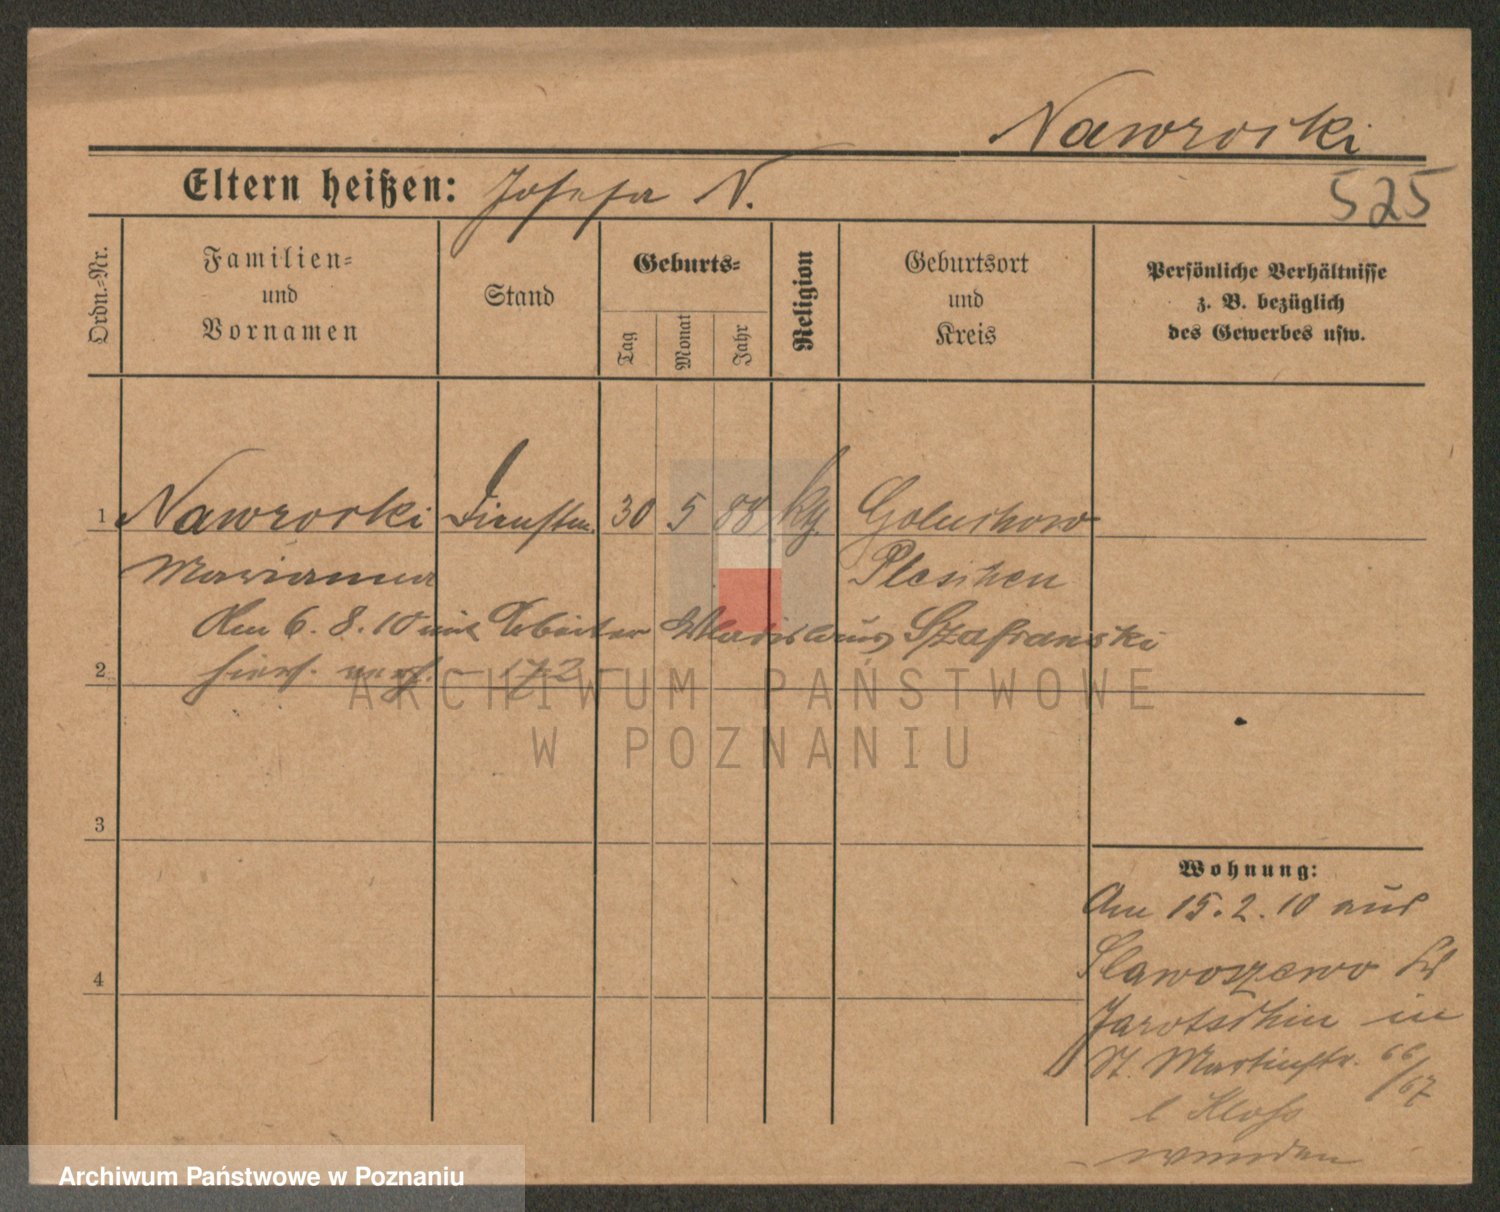 Nawrocki
Eltern heißen: Josefa N.
525
Ordn.-Nr.
Familien-
und
Vornamen
Stand
Geburts-
Tag
Monat
Jahr
Religion
Geburtsort
und
Kreis
Persönliche Verhältnisse
z. B. bezüglich
des Gewerbes usw.
1 Nawrocki Dienstm. 30 5 88 kg. Goluchow
Marianna Pleschen
Am 6. 8. 10 mit Arbeiter Wladislaus Szafranski
2 hiers. verh. - 172 -
ARCHIWUM PAŃSTWOWE
W POZNANIU
3
4
Wohnung:
Am 15. 2. 10 aus
Slawoszewo Kr
Jarotschin in
St. Martinstr. 66/67
Archiwum Państwowe w Poznaniu